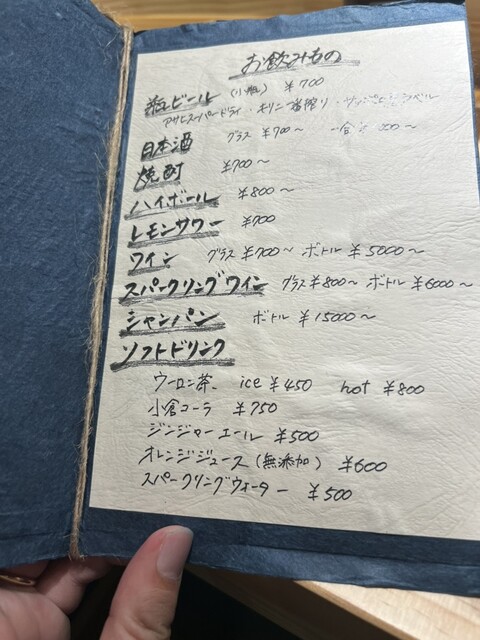 お飲みもの
瓶ビール (小瓶) ¥700
アサヒスーパードライ・キリン一番搾り・サッポロ ラベル
日本酒 グラス ¥700〜 一合
焼酎 ¥700〜
ハイボール ¥800〜
レモンサワー ¥700
ワイン グラス ¥700〜 ボトル ¥5000〜
スパークリングワイン グラス ¥800〜 ボトル ¥6000〜
シャンパン ボトル ¥15000〜
ソフトドリンク
ウーロン茶 ice ¥450 hot ¥800
小倉コーラ ¥750
ジンジャーエール ¥500
オレンジジュース (無添加) ¥600
スパークリングウォーター ¥500